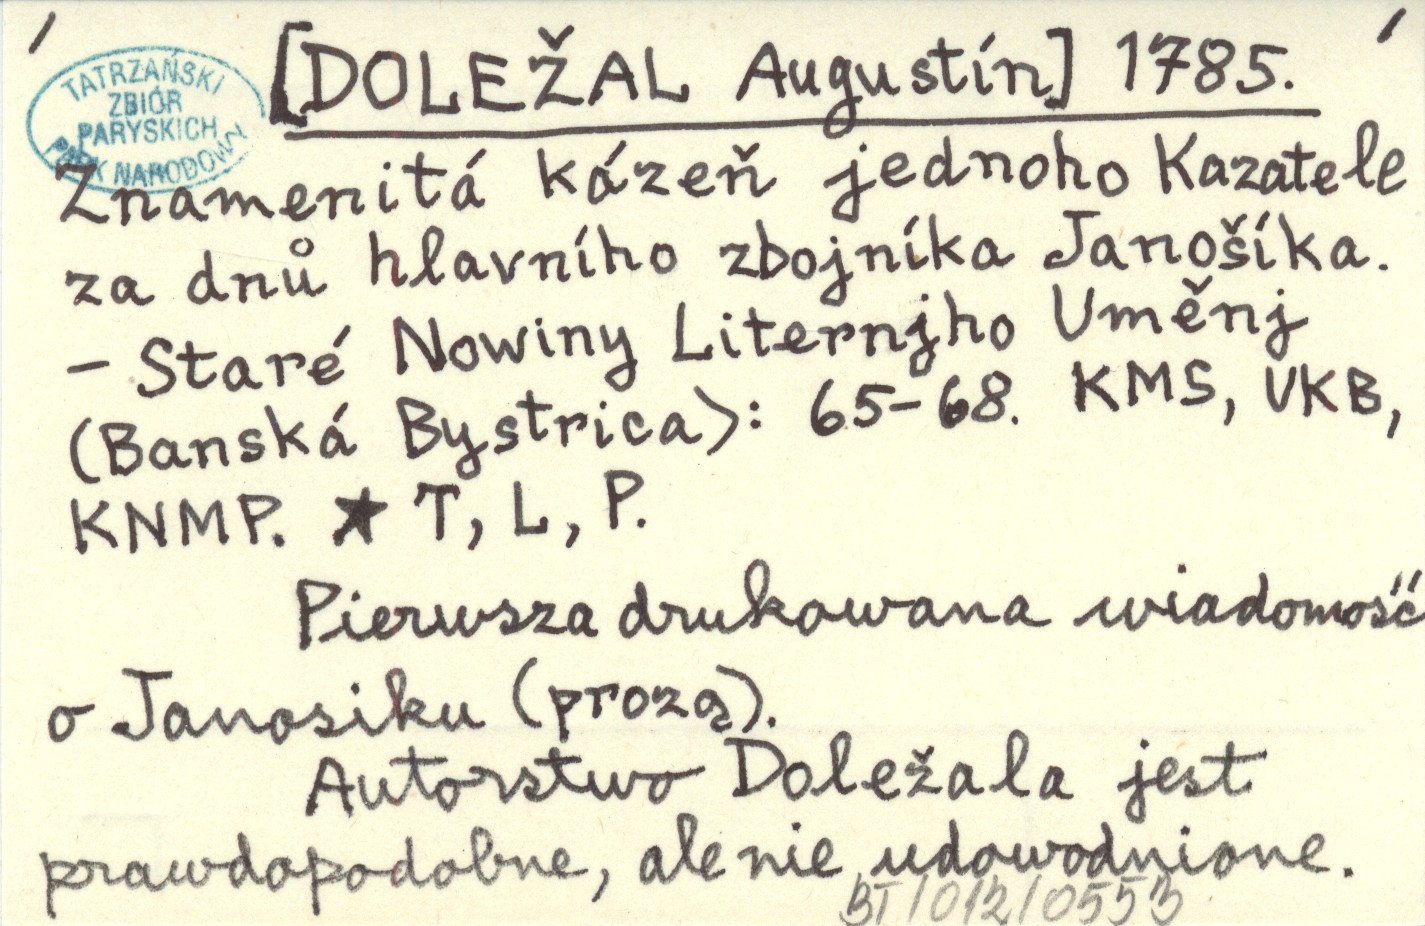 [DOLEŽAL Augustín] 1785.
TATRZAŃSKI
ZBIÓR
PARYSKICH
PARK NARODOWY
Znamenitá kázeň jednoho Kazatele
za dnů hlavního zbojníka Janošíka.
– Staré Nowiny Liternjho Uměnj
(Banská Bystrica): 65–68. KMS, VKB,
KNMP. ★ T, L, P.
Pierwsza drukowana wiadomość
o Janosiku (prozą).
Autorstwo Doležala jest
prawdopodobne, ale nie udowodnione.
BT/012/0553